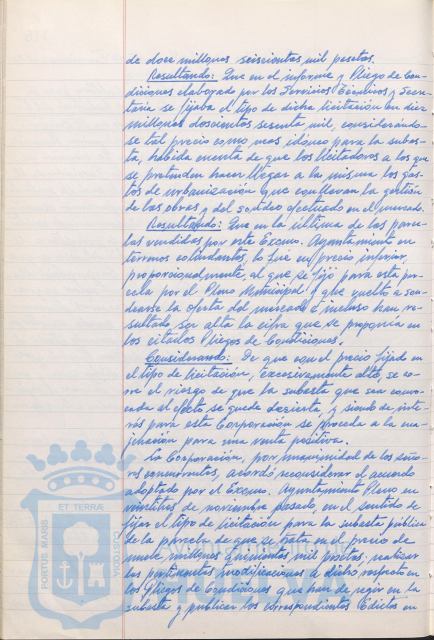 de doce millones seiscientas mil pesetas.
Resultando: Que en el informe y Pliego de Con-
diciones elaborado por los Servicios Técnicos y Secre-
taría se fijaba el tipo de dicha licitación en diez
millones doscientas sesenta mil, considerándo-
se tal precio como mas idóneo para la subas-
ta, habida cuenta de que los licitadores a los que
se pretenden hacer llegar a la misma los gas-
tos de urbanización que conllevan la gestión
de las obras y del sondeo efectuado en el mercado.
Resultando: Que en la última de las parce-
las vendidas por este Excmo. Ayuntamiento en
terrenos colindantes, lo fue en precio inferior,
proporcionalmente, al que se fijó para esta par-
cela por el Pleno Municipal y que vuelto a son-
dearse la oferta del mercado e incluso han re-
sultado ser alta la cifra que se proponía en
los citados Pliegos de Condiciones.
Considerando: De que con el precio fijado en
el tipo de licitación, excesivamente alto, se co-
rre el riesgo de que la subasta que sea convo-
cada al efecto se quede desierta, y siendo de inte-
rés para esta Corporación se proceda a la
para una venta positiva.
La Corporación, por unanimidad de los seño-
res concurrentes, acordó reconsiderar el acuerdo
adoptado por el Excmo. Ayuntamiento Pleno en
veintitres de noviembre pasado, en el sentido de
fijar el tipo de licitación para la subasta pública
de la parcela de que se trata en el precio de
nueve millones quinientas mil pesetas, realizar
las pertinentes modificaciones a dicho respecto en
los Pliegos de Condiciones que han de regir en la
subasta y publicar los correspondientes Edictos en
PORTUS MARIS
ET TERRÆ
CUSTODIA